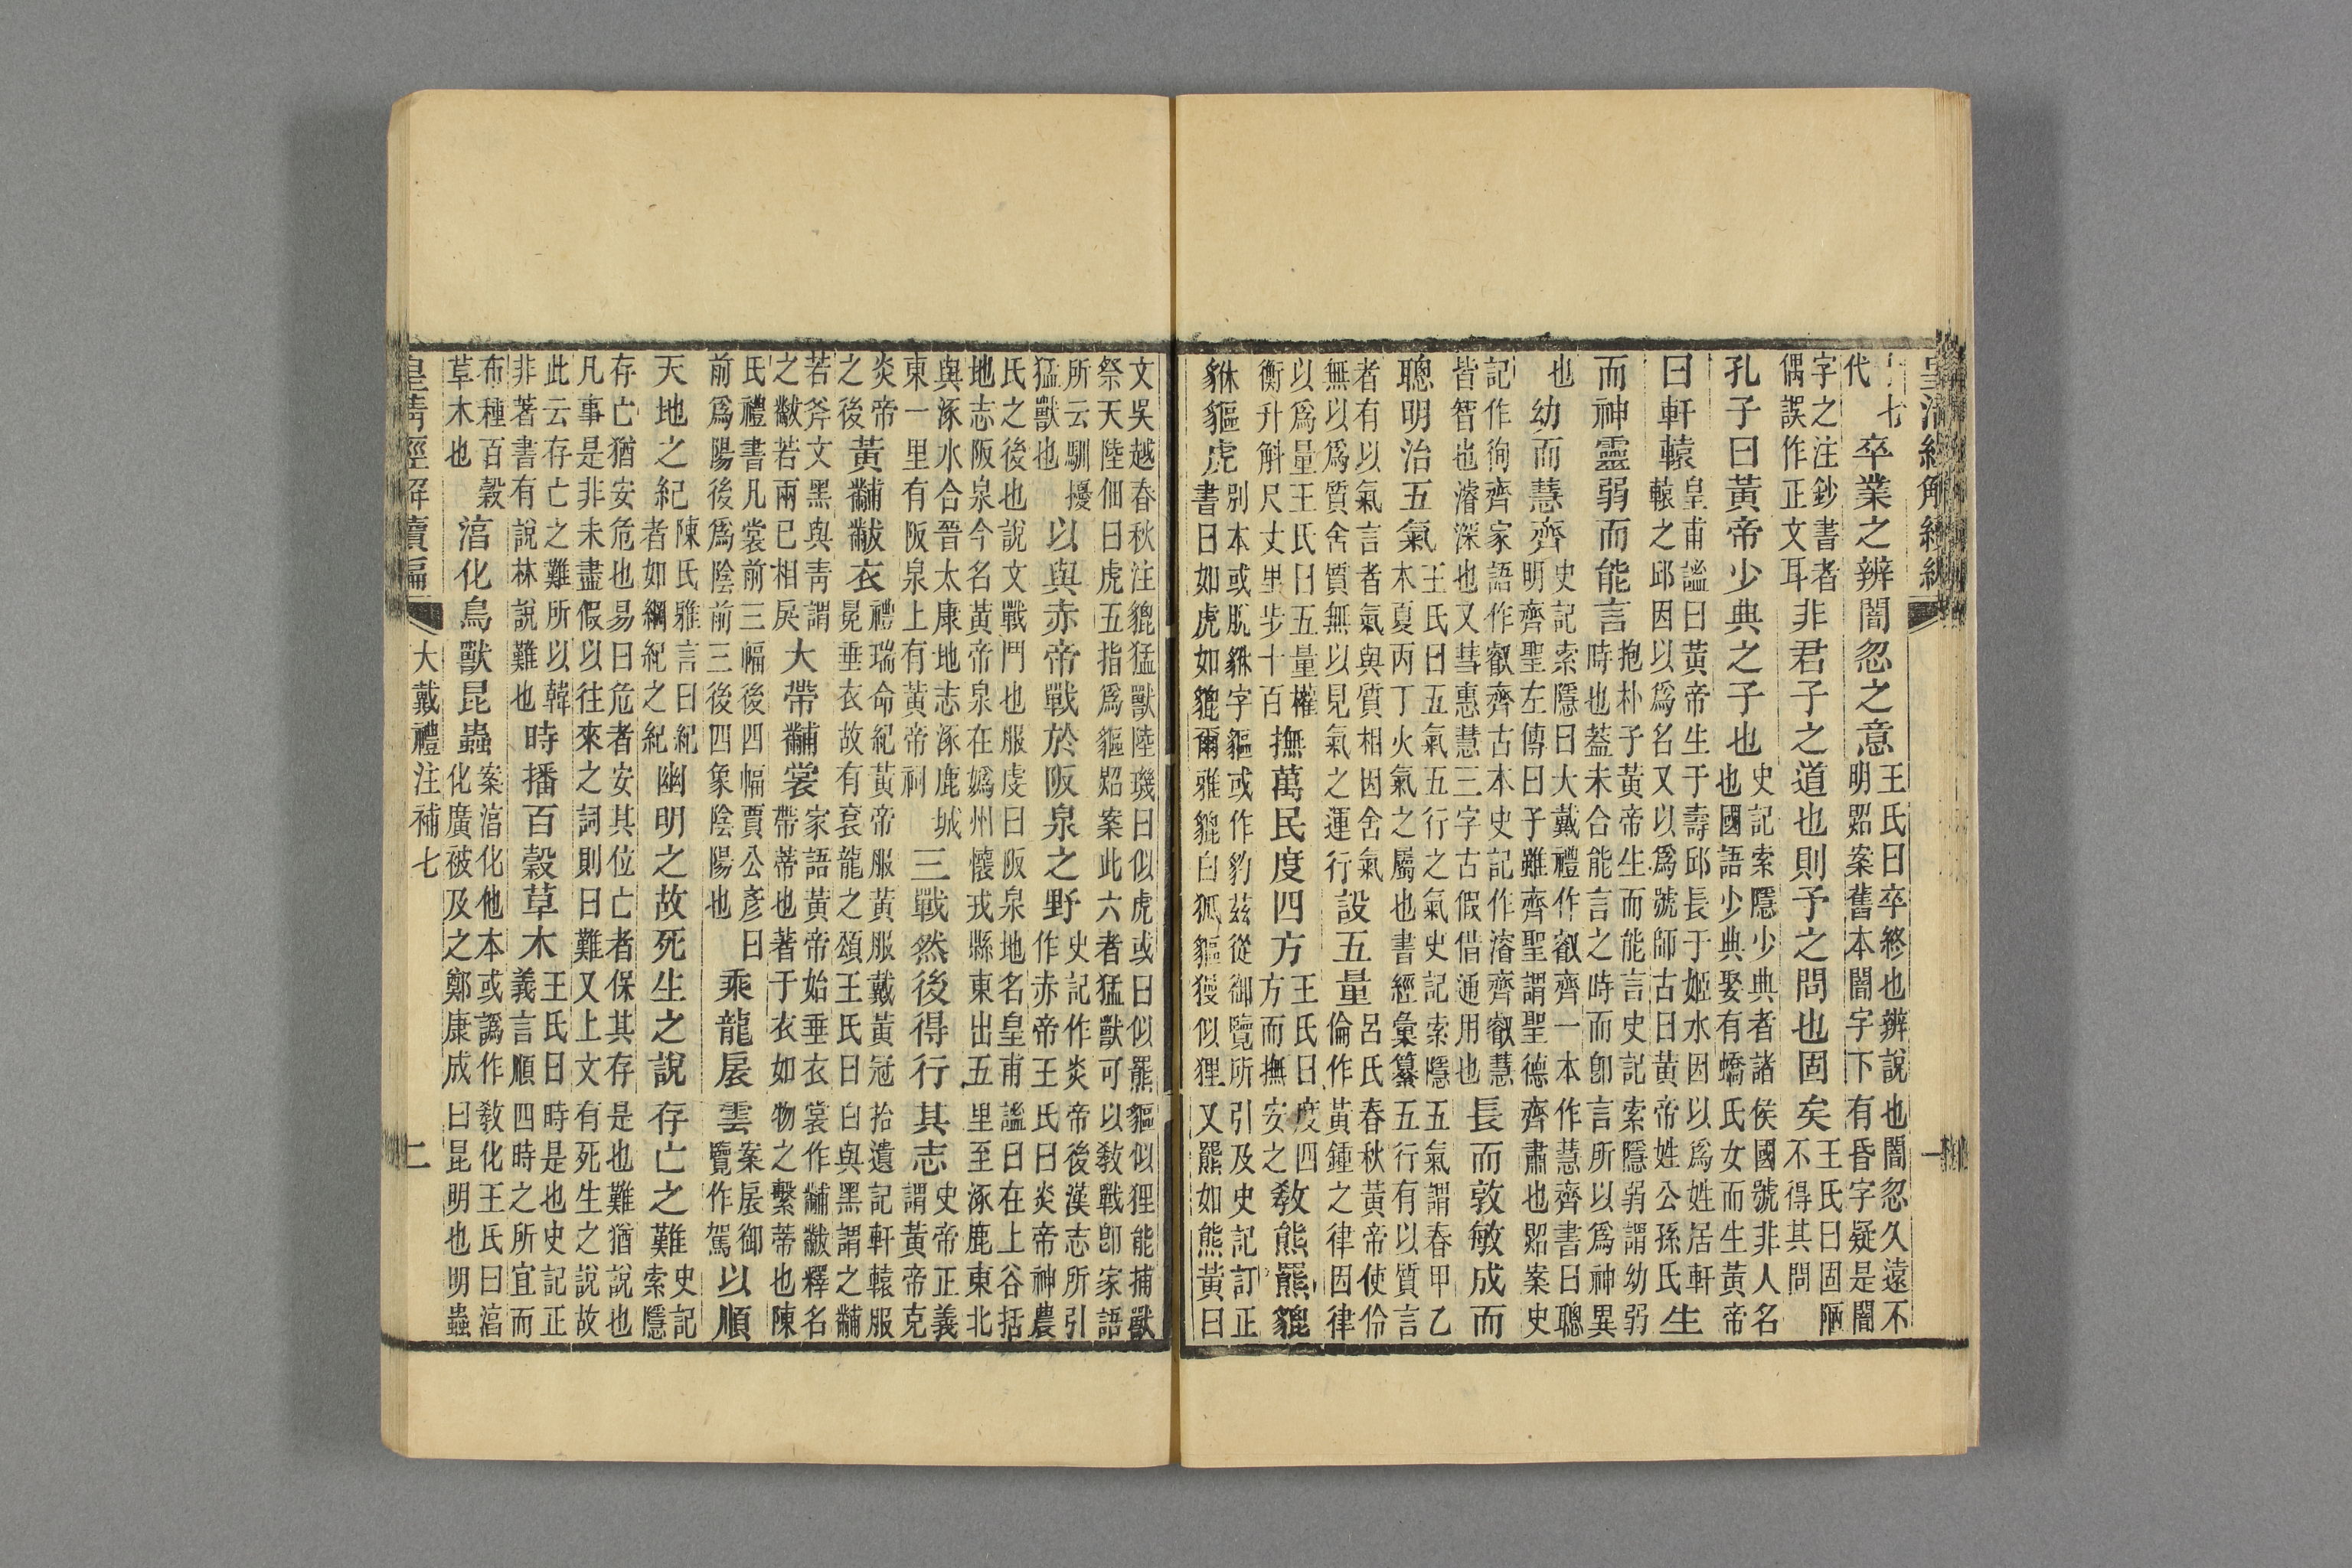 皇清經解續編 一
七
代
卒業之辨闇忽之意
王氏曰卒終也辨說也闇忽久遠不
明照案舊本闇字下有昏字疑是闇
字之注鈔書者
偶誤作正文耳
非君子之道也則予之問也固矣
王氏曰固陋
不得其問
孔子曰黃帝少典之子也
史記索隱少典者諸侯國號非人名
也國語少典娶有蟜氏女而生黃帝
曰軒轅
皇甫謐曰黃帝生于壽邱長于姬水因以爲姓居軒
轅之邱因以爲名又以爲號師古曰黃帝姓公孫氏
生
而神靈弱而能言
抱朴子黃帝生而能言史記索隱弱謂幼弱
時也蓋未合能言之時而卽言所以爲神異
也
幼而慧齊
史記索隱曰大戴禮作叡齊一本作慧齊書曰聰
明齊聖左傳曰子雖齊聖謂聖德齊肅也照案史
記作徇齊家語作叡齊古本史記作濬齊叡慧
皆智也濬深也又彗惠慧三字古假借通用也
長而敦敏成而
聰明治五氣
王氏曰五氣五行之氣史記索隱五氣謂春甲乙
木夏丙丁火氣之屬也書經彙纂五行有以質言
者有以氣言者氣與質相因舍氣
無以爲質舍質無以見氣之運行
設五量
呂氏春秋黃帝使伶
倫作黃鍾之律因律
以爲量王氏曰五量權
衡升斛尺丈里步十百
撫萬民度四方
王氏曰度四
方而撫安之
教熊羆貔
貅貙虎
別本或脫貅字貙或作豹茲從御覽所引及史記訂正
書曰如虎如貔爾雅貔白狐貙獌似狸又羆如熊黃曰
文吳越春秋注貔猛獸陸璣曰似虎或曰似羆貙似狸能捕獸
祭天陸佃曰虎五指爲貙照案此六者猛獸可以教戰卽家語
所云馴擾
猛獸也
以與赤帝戰於阪泉之野
史記作炎帝後漢志所引
作赤帝王氏曰炎帝神農
氏之後也說文戰鬥也服虔曰阪泉地名皇甫謐曰在上谷括
地志阪泉今名黃帝泉在嬀州懷戎縣東出五里至涿鹿東北
與涿水合晉太康地志涿鹿城
東一里有阪泉上有黃帝祠
三戰然後得行其志
史帝正義
謂黃帝克
炎帝
之後
黃黼黻衣
禮瑞命紀黃帝服黃服戴黃冠拾遺記軒轅服
冕垂衣故有袞龍之頌王氏曰白與黑謂之黼
若斧文黑與青謂
之黻若兩已相戾
大帶黼裳
家語黃帝始垂衣裳作黼黻釋名
帶蒂也著于衣如物之繫蒂也陳
氏禮書凡裳前三幅後四幅賈公彥曰
前爲陽後爲陰前三後四象陰陽也
乘龍扆雲
案扆御
覽作駕
以順
天地之紀
陳氏雅言曰紀
者如綱紀之紀
幽明之故死生之說存亡之難
史記
索隱
存亡猶安危也易曰危者安其位亡者保其存是也難猶說也
凡事是非未盡假以往來之詞則曰難又上文有死生之說故
此云存亡之難所以韓
非著書有說林說難也
時播百穀草木
王氏曰時是也史記正
義言順四時之所宜而
布種百穀
草木也
淳化鳥獸昆蟲
案淳化他本或譌作教化王氏曰淳
化廣被及之鄭康成曰昆明也明蟲
皇清經解續編 大戴禮注補七 二